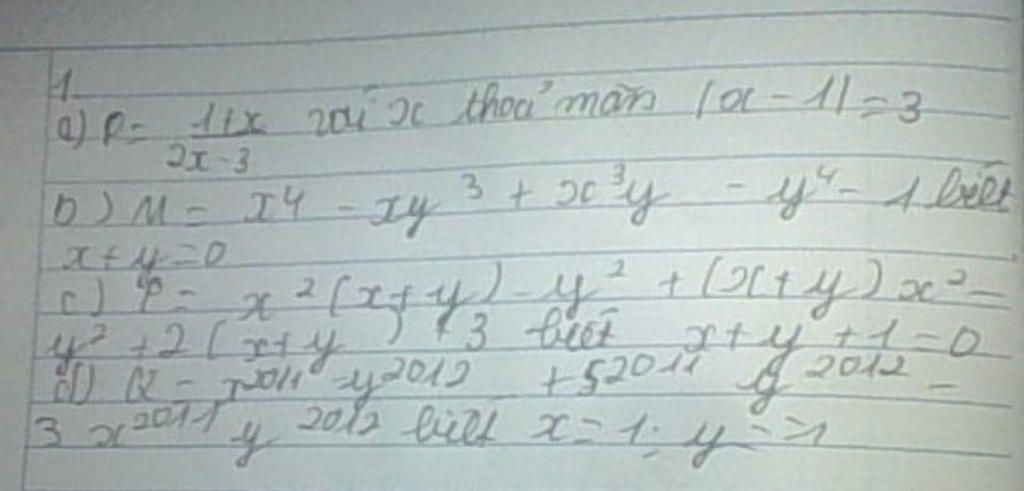 1.
a) P = \frac{1+x}{2x-3} với x thoả mãn |x-1| = 3
b) M = x^4 - xy^3 + x^3y - y^4 - 1 biết
x+y=0
c) P = x^2(x+y) - y^2 + (x+y)x^2 -
y^2 + 2(x+y) + 3 biết x+y+1=0
d) Q = x^{2011} - y^{2012} + 5^{2011} y^{2012} -
3x^{2011} y^{2012} biết x=1; y=-1